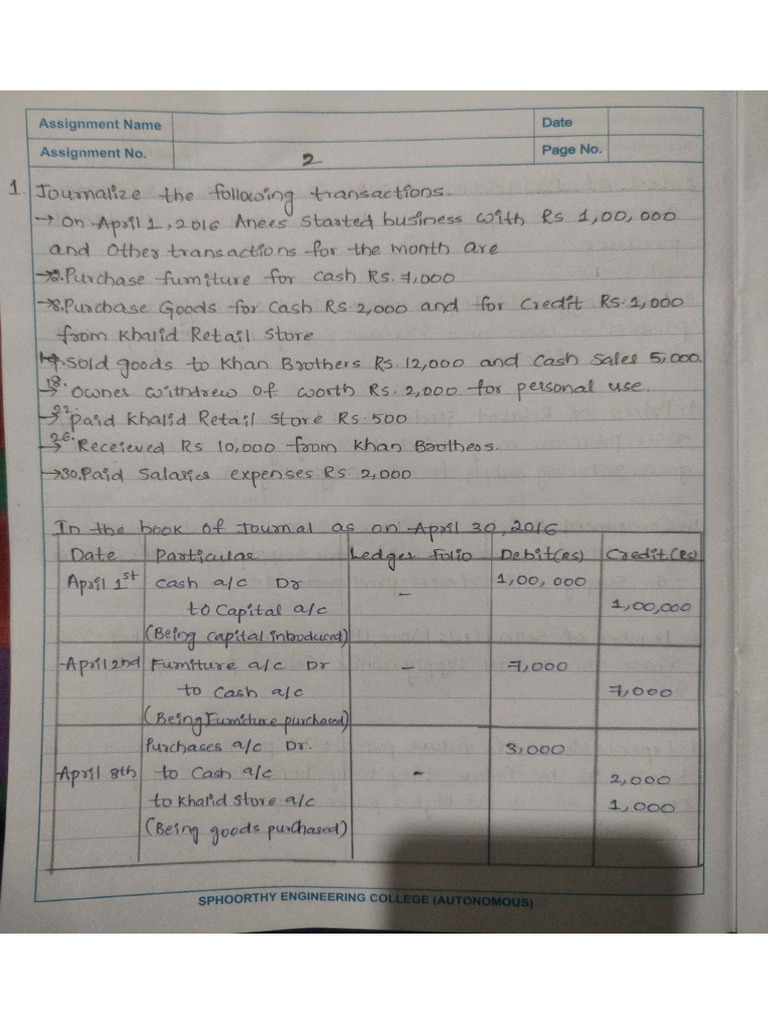 Assignment Name Date
Assignment No. 2 Page No.
1. Journalize the following transactions.
→ On April 1, 2016 Anees started business with Rs 1,00,000
and other transactions for the month are
→2. Purchase furniture for cash Rs. 7,000
→8. Purchase Goods for Cash Rs. 2,000 and for Credit Rs. 1,000
from Khalid Retail Store
14. Sold goods to Khan Brothers Rs. 12,000 and Cash Sales 5,000.
→18. Owner withdrew of worth Rs. 2,000 for personal use.
→22. Paid Khalid Retail Store Rs. 500
→26. Receieved Rs 10,000 from Khan Brothers.
→30. Paid Salaries expenses Rs 2,000
In the book of Journal as on April 30, 2016
Date Particular Ledger folio Debit(Rs) Credit(Rs)
April 1st Cash a/c Dr - 1,00,000
to Capital a/c 1,00,000
(Being capital introduced)
April 2nd Furniture a/c Dr - 7,000
to Cash a/c 7,000
(Being Furniture purchased)
Purchases a/c Dr. 3,000
April 8th to Cash a/c - 2,000
to Khalid Store a/c 1,000
(Being goods purchased)
SPHOORTHY ENGINEERING COLLEGE (AUTONOMOUS)